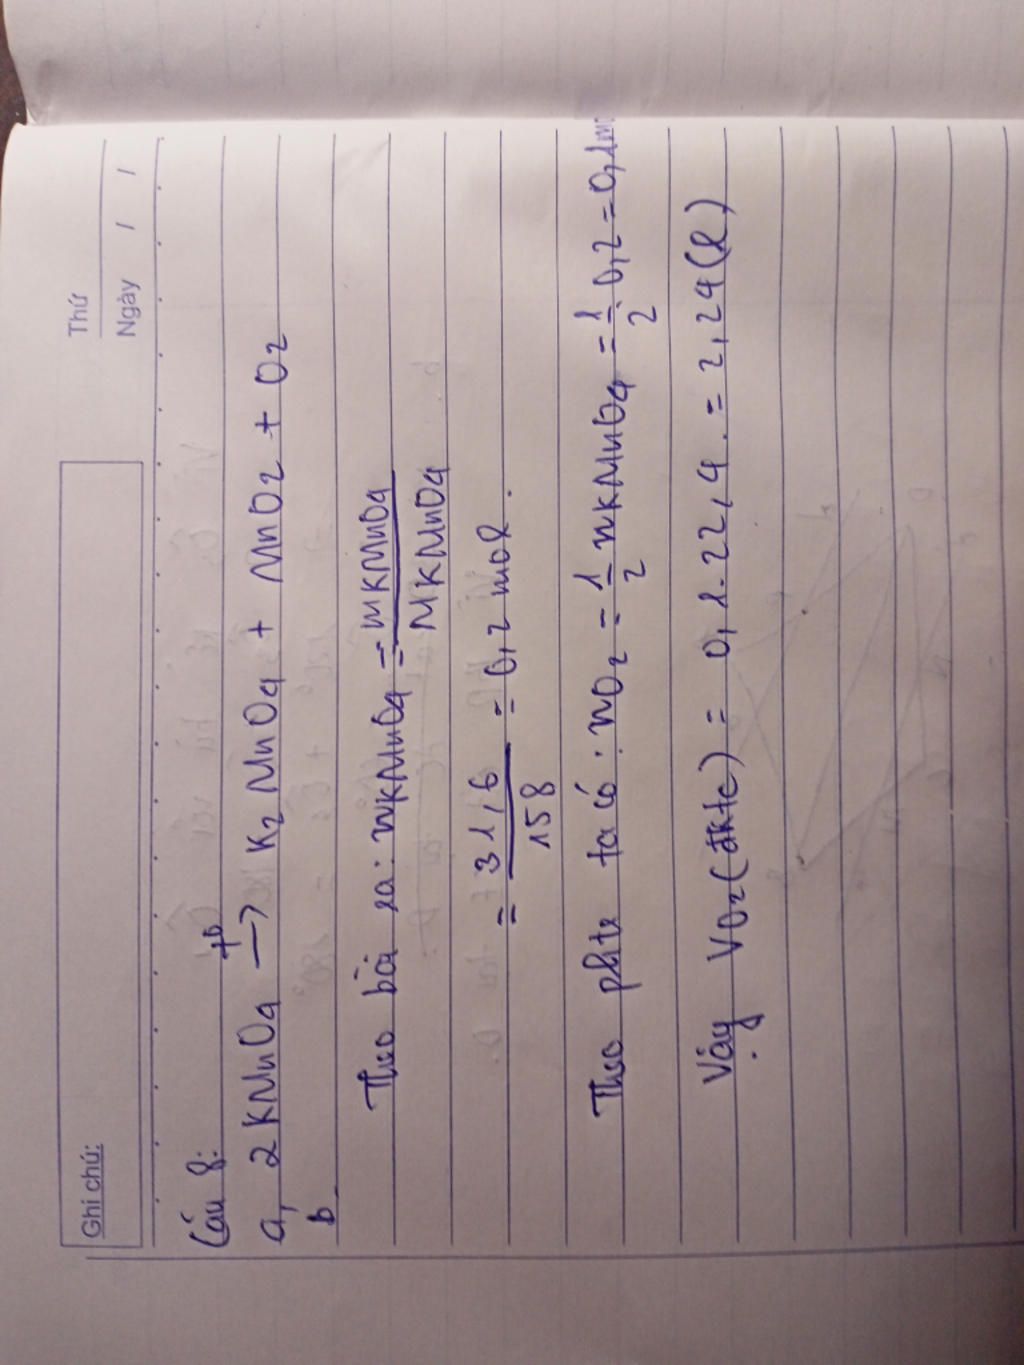 Ghi chú:
Thứ
Ngày / /
Câu 8:
a, 2 KMnO4 →(t°) K2MnO4 + MnO2 + O2
b,
Theo bài ra: nKMnO4 = mKMnO4 / MKMnO4
= 31,6 / 158 = 0,2 mol.
Theo phtr ta có: nO2 = 1/2 nKMnO4 = 1/2 . 0,2 = 0,1mo
Vậy VO2(đktc) = 0,1.22,4. = 2,24(l)